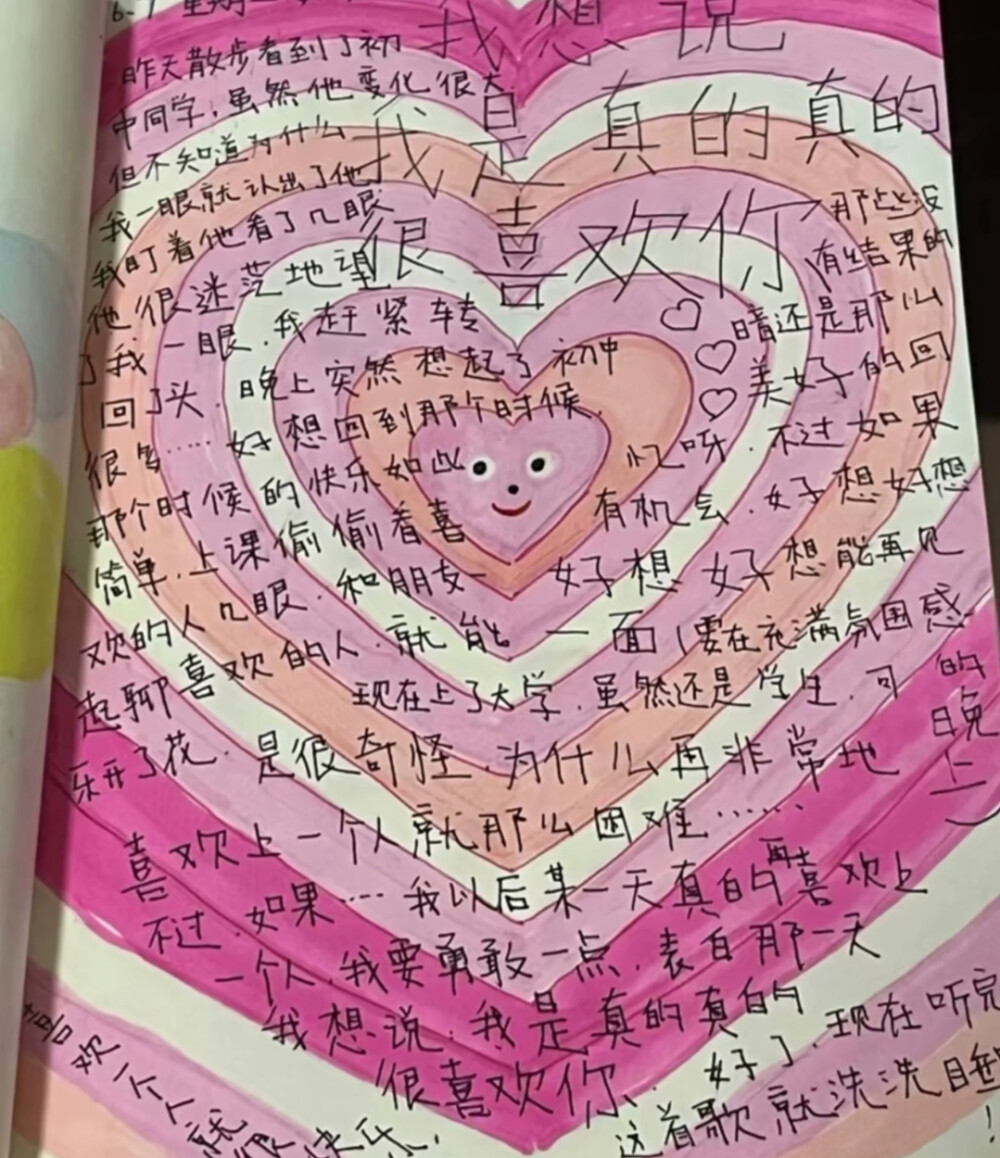 我想说
我是真的真的
很喜欢你
昨天散步看到了初
中同学,虽然他变化很大
但不知道为什么
我一眼就认出了他
我盯着他看了几眼
他很迷茫地望
了我一眼.我赶紧转
回了头.晚上突然想起了初中
很多……好想回到那个时候.
那个时候的快乐如此
简单.上课偷偷看喜
欢的人几眼.和朋友一
起聊喜欢的人.就能
乐开了花.
那些没
有结果的
暗还是那么
美好的回
忆呀.不过如果
有机会.好想好想
好想好想能再见
一面(要在充满氛围感
的晚上)
现在上了大学.虽然还是学生.可
是很奇怪.为什么再非常地
喜欢上一个人就那么困难……
不过.如果……我以后某一天真的再喜欢上
一个人.我要勇敢一点.表白那一天
我想说.我是真的真的
很喜欢你.
好了.现在听完
这首歌就洗洗睡!
喜欢一个人就很快乐.